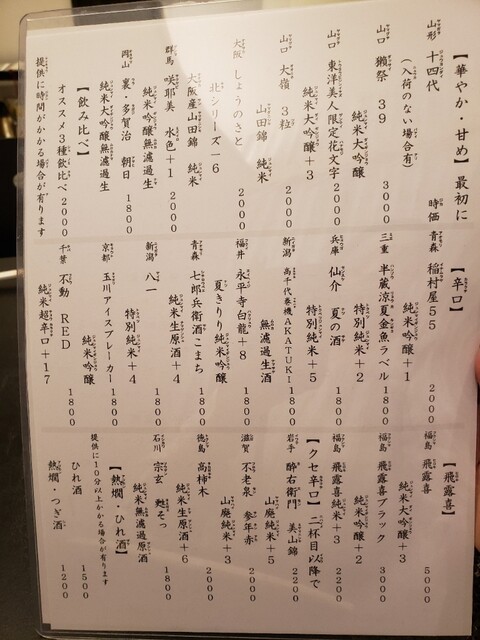 【華やか・甘め】最初に
山形 十四代 時価
(入荷のない場合有)
山口 獺祭 39
純米大吟醸 3000
山口 東洋美人 限定花文字 2000
純米大吟醸+3
山口 大嶺 3粒 2000
山田錦 純米
大阪 しょうのさと 2000
北シリーズ-6
大阪産山田錦 純米
群馬 咲耶美 水色+1 2000
純米吟醸無濾過生
岡山 裏・多賀治 朝日 1800
純米大吟醸無濾過生
【飲み比べ】
オススメ3種飲比べ 2000
提供に時間がかかる場合が有ります
【辛口】
青森 稲村屋55 2000
純米吟醸+1
三重 半蔵涼夏金魚ラベル 1800
特別純米+2
兵庫 仙介 夏の酒 1800
特別純米+5
新潟 高千代巻機AKATUKI 1800
無濾過生酒
福井 永平寺白龍+8 1800
夏きりり 純米吟醸
青森 七郎兵衛酒こまち 1800
純米生原酒+4
新潟 八一 1800
特別純米+4
京都 玉川アイスブレーカー 1800
純米吟醸
千葉 不動 RED 1800
純米超辛口+17
【飛露喜】
福島 飛露喜 5000
純米大吟醸+3
福島 飛露喜ブラック 3000
純米吟醸+2
福島 飛露喜純米+3 2200
【クセ辛口】二杯目以降で
岩手 酔右衛門 美山錦 2200
山廃純米+5
滋賀 不老泉 参年赤 2000
山廃純米+3
徳島 高柿木 2000
純米生原酒+6
石川 宗玄 甦そっ 1800
純米無濾過原酒
【熱燗・ひれ酒】
提供に10分以上かかる場合が有ります
ひれ酒 1500
熱燗・つぎ酒 1200